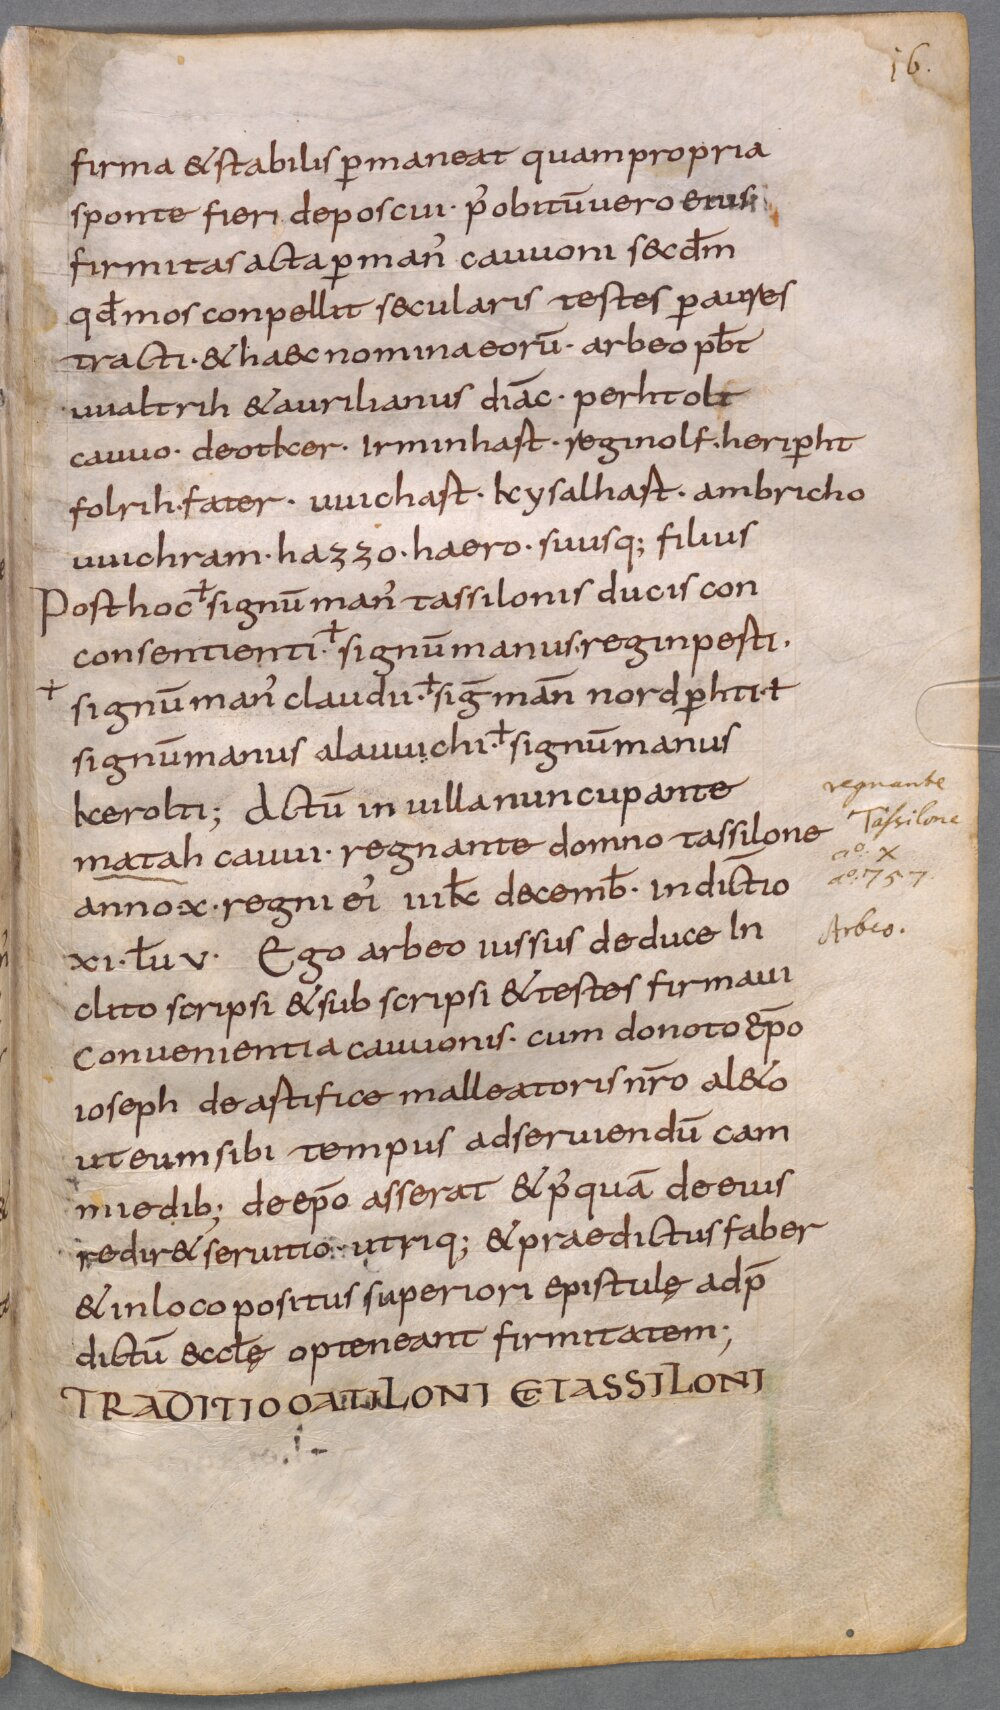 16.
firma &stabilis ꝑmaneat quampropria
sponte fieri deposciui· p̾obitū uero eius
firmitas acta ꝑman̾ cauuoni sec̄dm
qđmos conpellit secularis testes ꝑaures
tracti· &haec nomina eorū· arbeo pb̄t
uualtrih &aurilianus diāc· perhtolt
cauuo· deotker· Irminhast· reginolf· heriꝑht
folrih· fater· uuichast· kysalhast· ambricho
uuichram· hazzo· haero· suusq; filius
Posthoc † signū man̾ tassilonis ducis con
consentienti· † signū manus· reginpesti·
† signū man̾ claudii· † siḡ mañ nordꝑhti· †
signū manus alauuichi· † signū manus
kerolti; Actū in uilla nuncupante
matah cauui· regnante domno tassilone
regnante
Tassilone
aº. X
aº. 757.
anno·x· regni ei̾ uiik̄ decemb̄· indictio
xi· łu v· Ego arbeo iussus deduce In
Arbeo.
clito scripsi &subscripsi &testes firmaui
Conuenientia cauuonis· cum donoto ep̄o
ioseph de astifice malleatoris nr̄o al&o
ut eum sibi tempus adseruiendū cam
miedib; de ep̄o asserat &p̾quā de eius
redir& seruitio· utriq; &praedictus faber
&inloco positus superiori epistulę adp̄
dictū eccłę opteneant firmitatem;
TRADITIO OATILONI ET TASSILONI